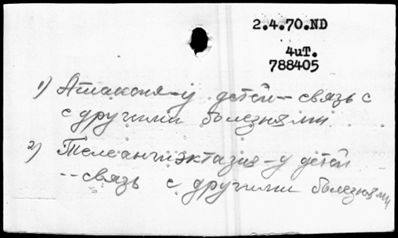 2.4.70.ND
4иТ.
788405
1) Атаксия-у детей-связь с
с другими болезнями.
2) Телеангиэктазия-у детей
--связь с другими болезнями